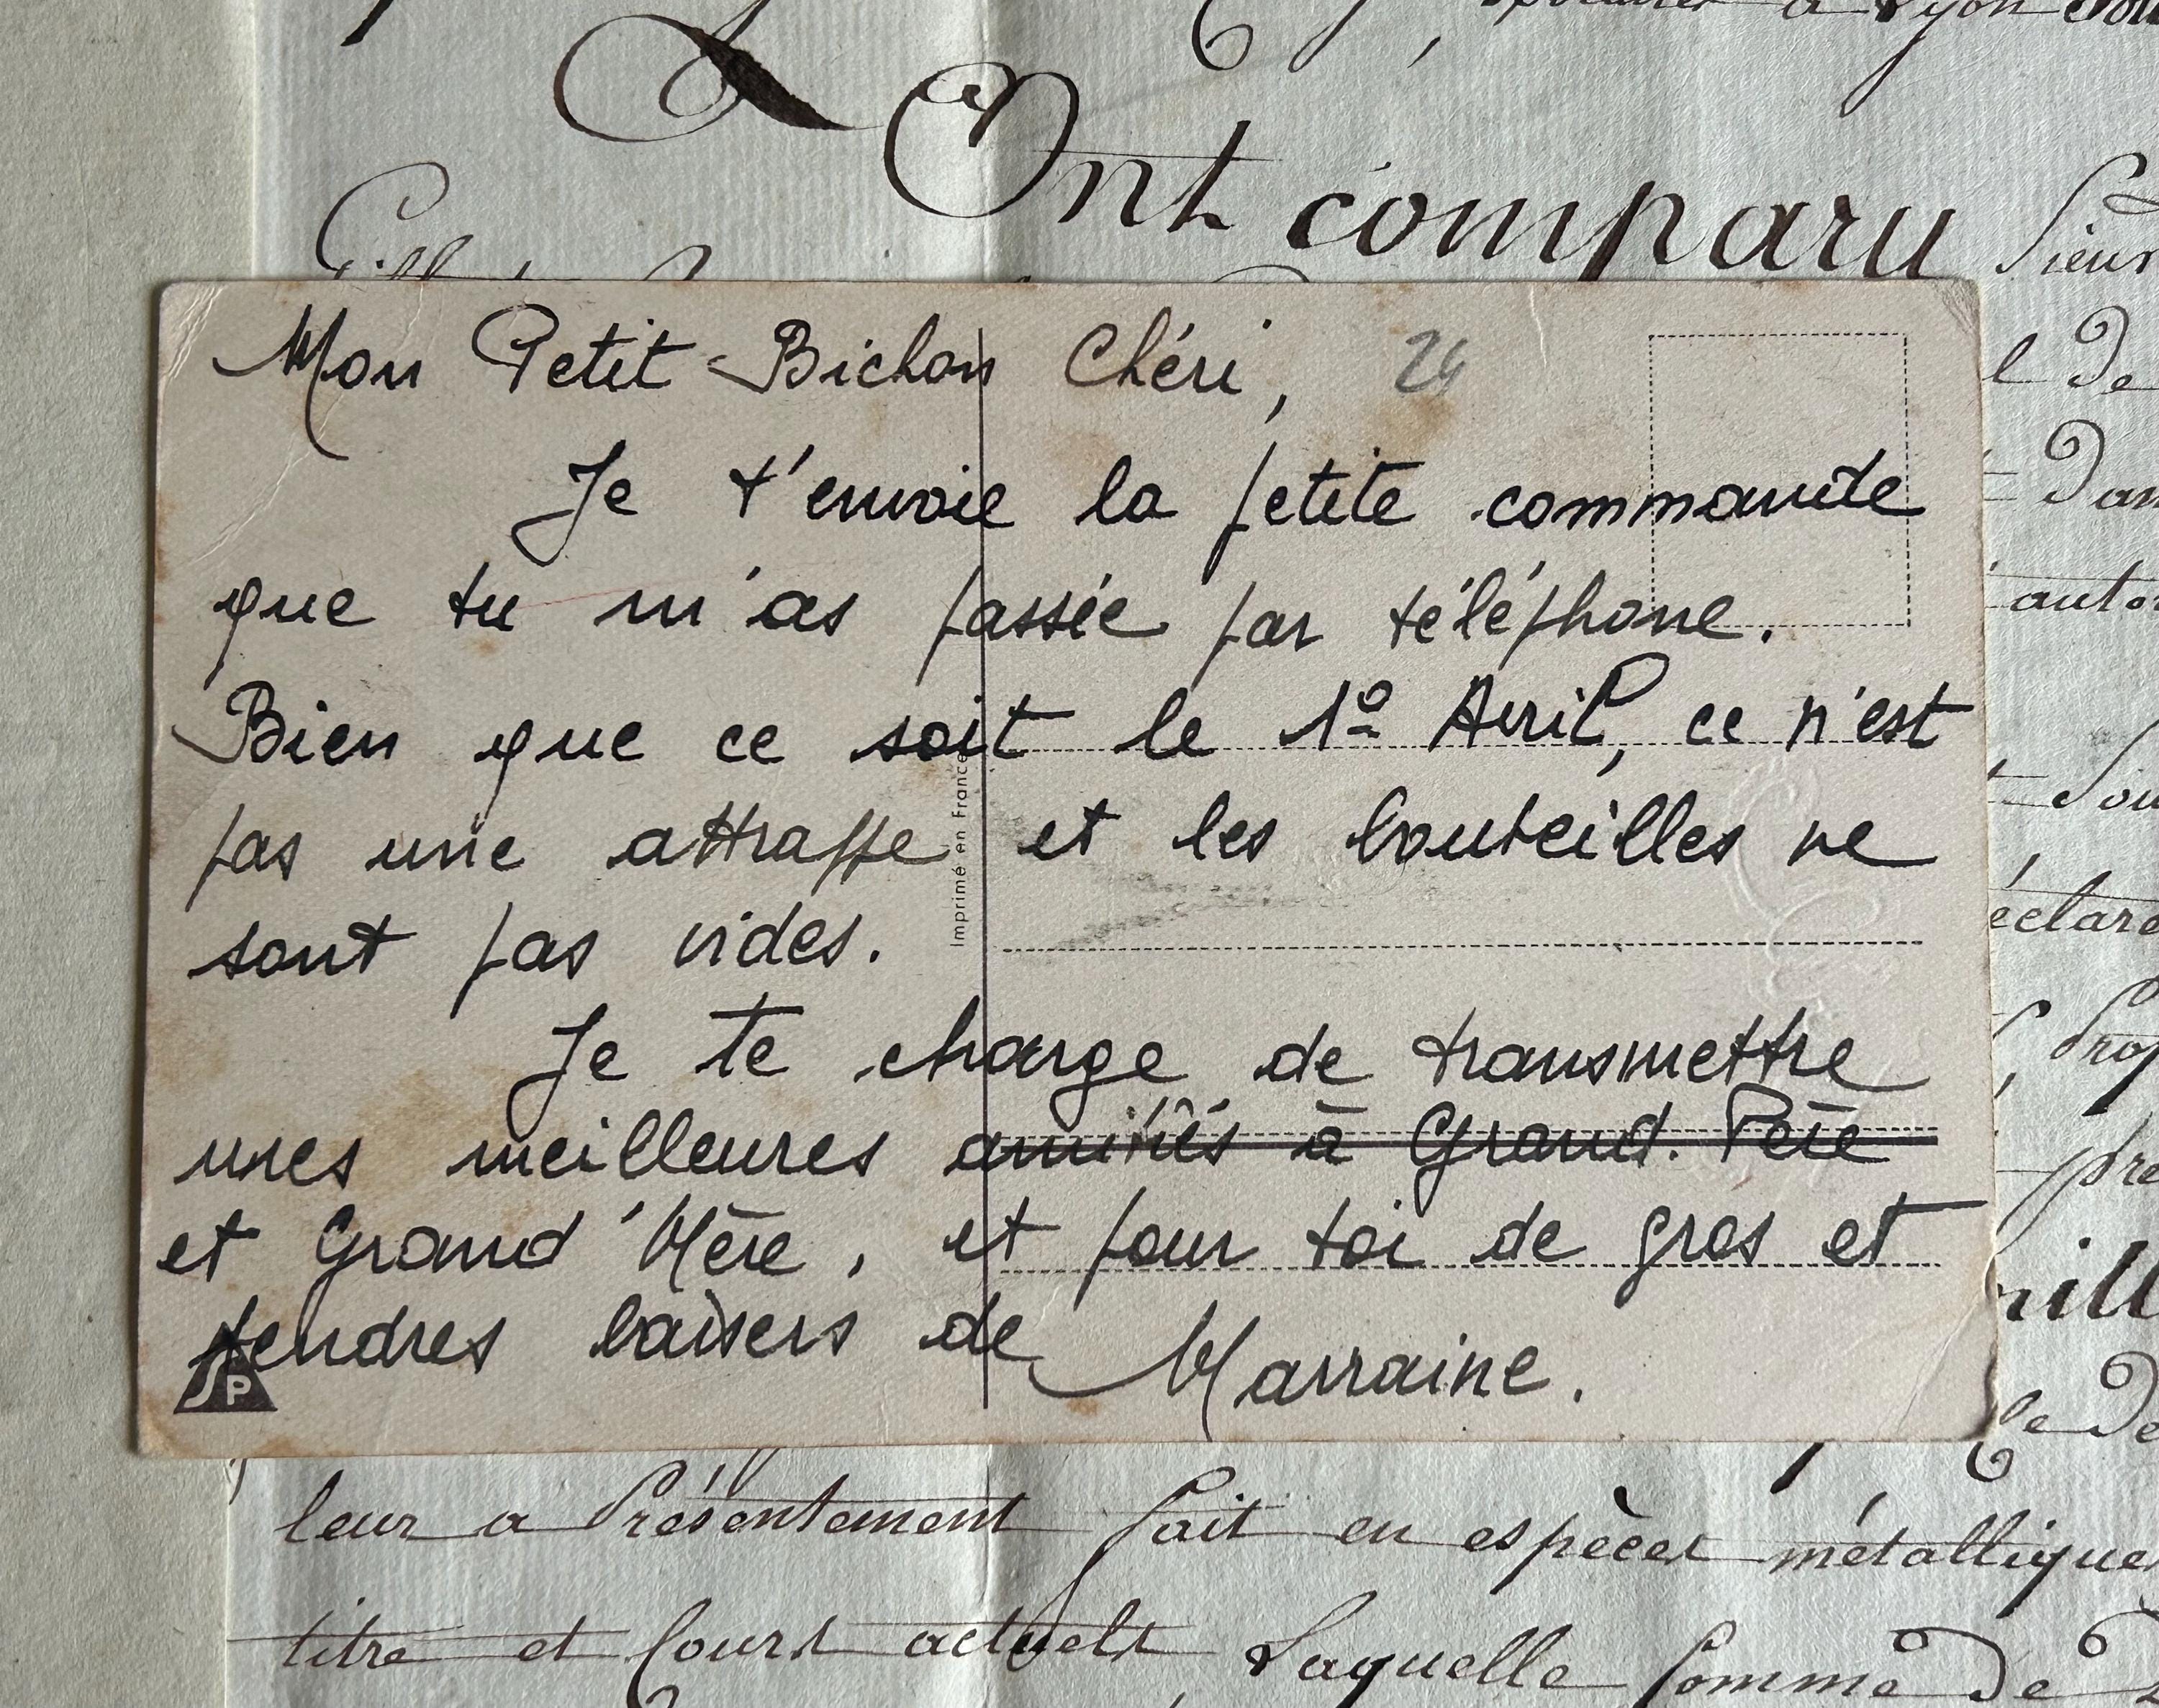 à Lyon
Ont comparu Sieur
Mon Petit Bichon Chéri, 24
l De
Je t'envoie la petite commande
Dan
que tu m'as passée par téléphone.
autor
Bien que ce soit le 1º Avril, ce n'est
pas une attrappe et les bouteilles ne
Imprimé en France
sont pas vides.
éclare
Je te charge de transmettre
Prop
mes meilleures amitiés à Grand. Père
pre
et Grand'Mère, et pour toi de gros et
mill
tendres baisers de Marraine.
JP
De
leur a Présentement fait en espèces métallique
titre et Cours actuels, Laquelle Somme De